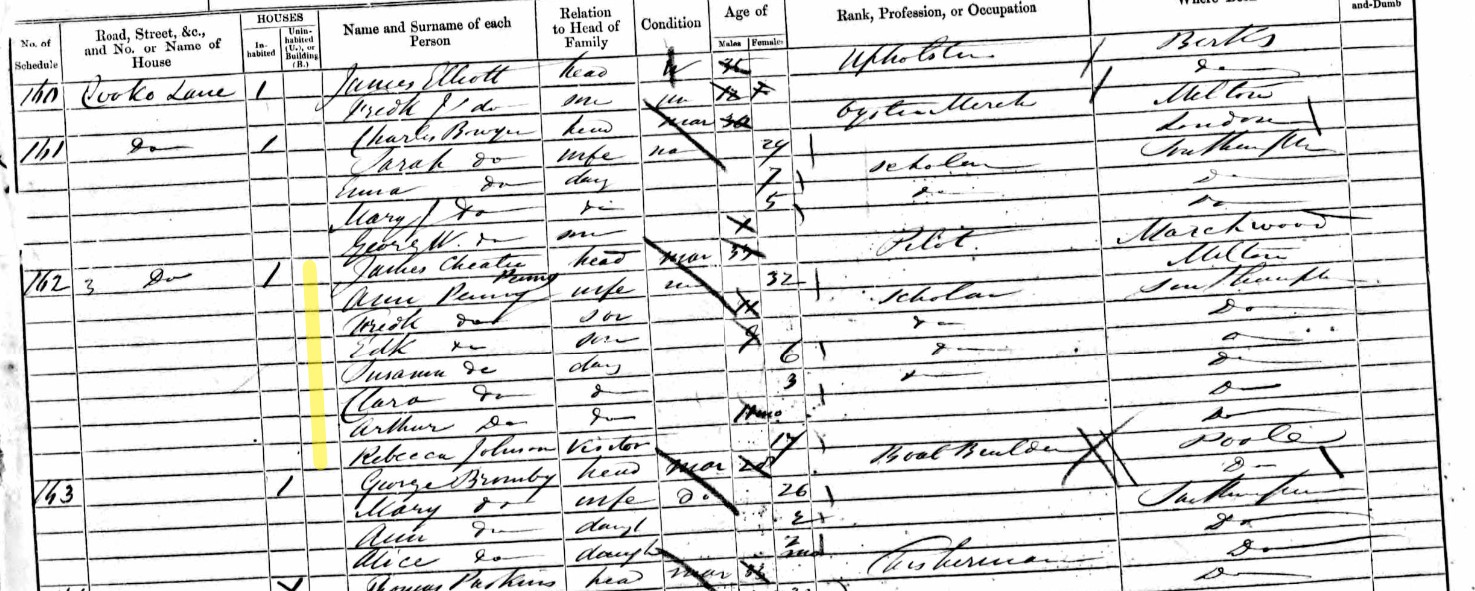 No. of Schedule | Road, Street, &c., and No. or Name of House | HOUSES Inhabited | Uninhabited (U.), or Building (B.) | Name and Surname of each Person | Relation to Head of Family | Condition | Age of Males | Females | Rank, Profession, or Occupation | and-Dumb
160 Lane 1 James Elliott head Upholsterer Berks
Fredk J do son un 12 Do
161 Do 1 Charles head mar 30 Oyster Merch Melton
Sarah do wife 29 London
Emma do daug 7 scholar Southampton
Mary J Do Do 5 Do Do
George W. do son Do
162 3 Do 1 James Cheater Penny head mar 35 Pilot Marchwood
Ann Penny wife 32 Melton
Fredk do son 11 scholar Southampton
Edk do son 9 do Do
Susanna do daug 6 do Do
Clara do do 3 do Do
Arthur Do do 11mo Do
Rebecca Johnson visitor 17 Do
163 1 George Bromby head mar 28 Boat Builder Poole
Mary do wife Do 26 Do
Ann do daugt 2 Southampton
Alice do daugh 2 mo Do
Thomas Parkins head mar Fisherman Do